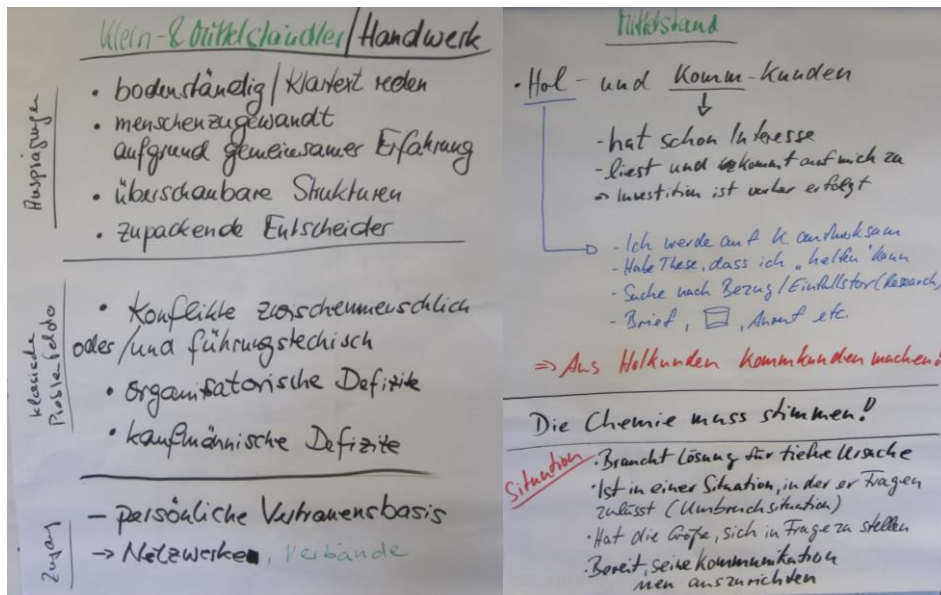 Klein- & Mittelständler/Handwerk
Ausprägungen
• bodenständig/Klartext reden
• menschenzugewandt
aufgrund gemeinsamer Erfahrung
• überschaubare Strukturen
• zupackende Entscheider
klassische
Problemfelder
• Konflikte zwischenmenschlich
oder/und führungstechisch
• organisatorische Defizite
• kaufmännische Defizite
Zugang
– persönliche Vertrauensbasis
→ Netzwerke, Verbände
Mittelstand
• Hol- und Komm-Kunden
- hat schon Interesse
- liest und kommt auf mich zu
⇒ Investition ist vorher erfolgt
- Ich werde auf K. aufmerksam
- Habe These, dass ich „helfen" kann
- Suche nach Bezug/Einfallstor (Research)
- Brief, , Anruf etc.
⇒ Aus Holkunden Kommkunden machen!
Die Chemie muss stimmen!
Situation
• Braucht Lösung für tiefere Ursache
• Ist in einer Situation, in der er Fragen
zulässt (Umbruchsituation)
• Hat die Größe, sich in Frage zu stellen
• Bereit, seine Kommunikation
neu auszurichten